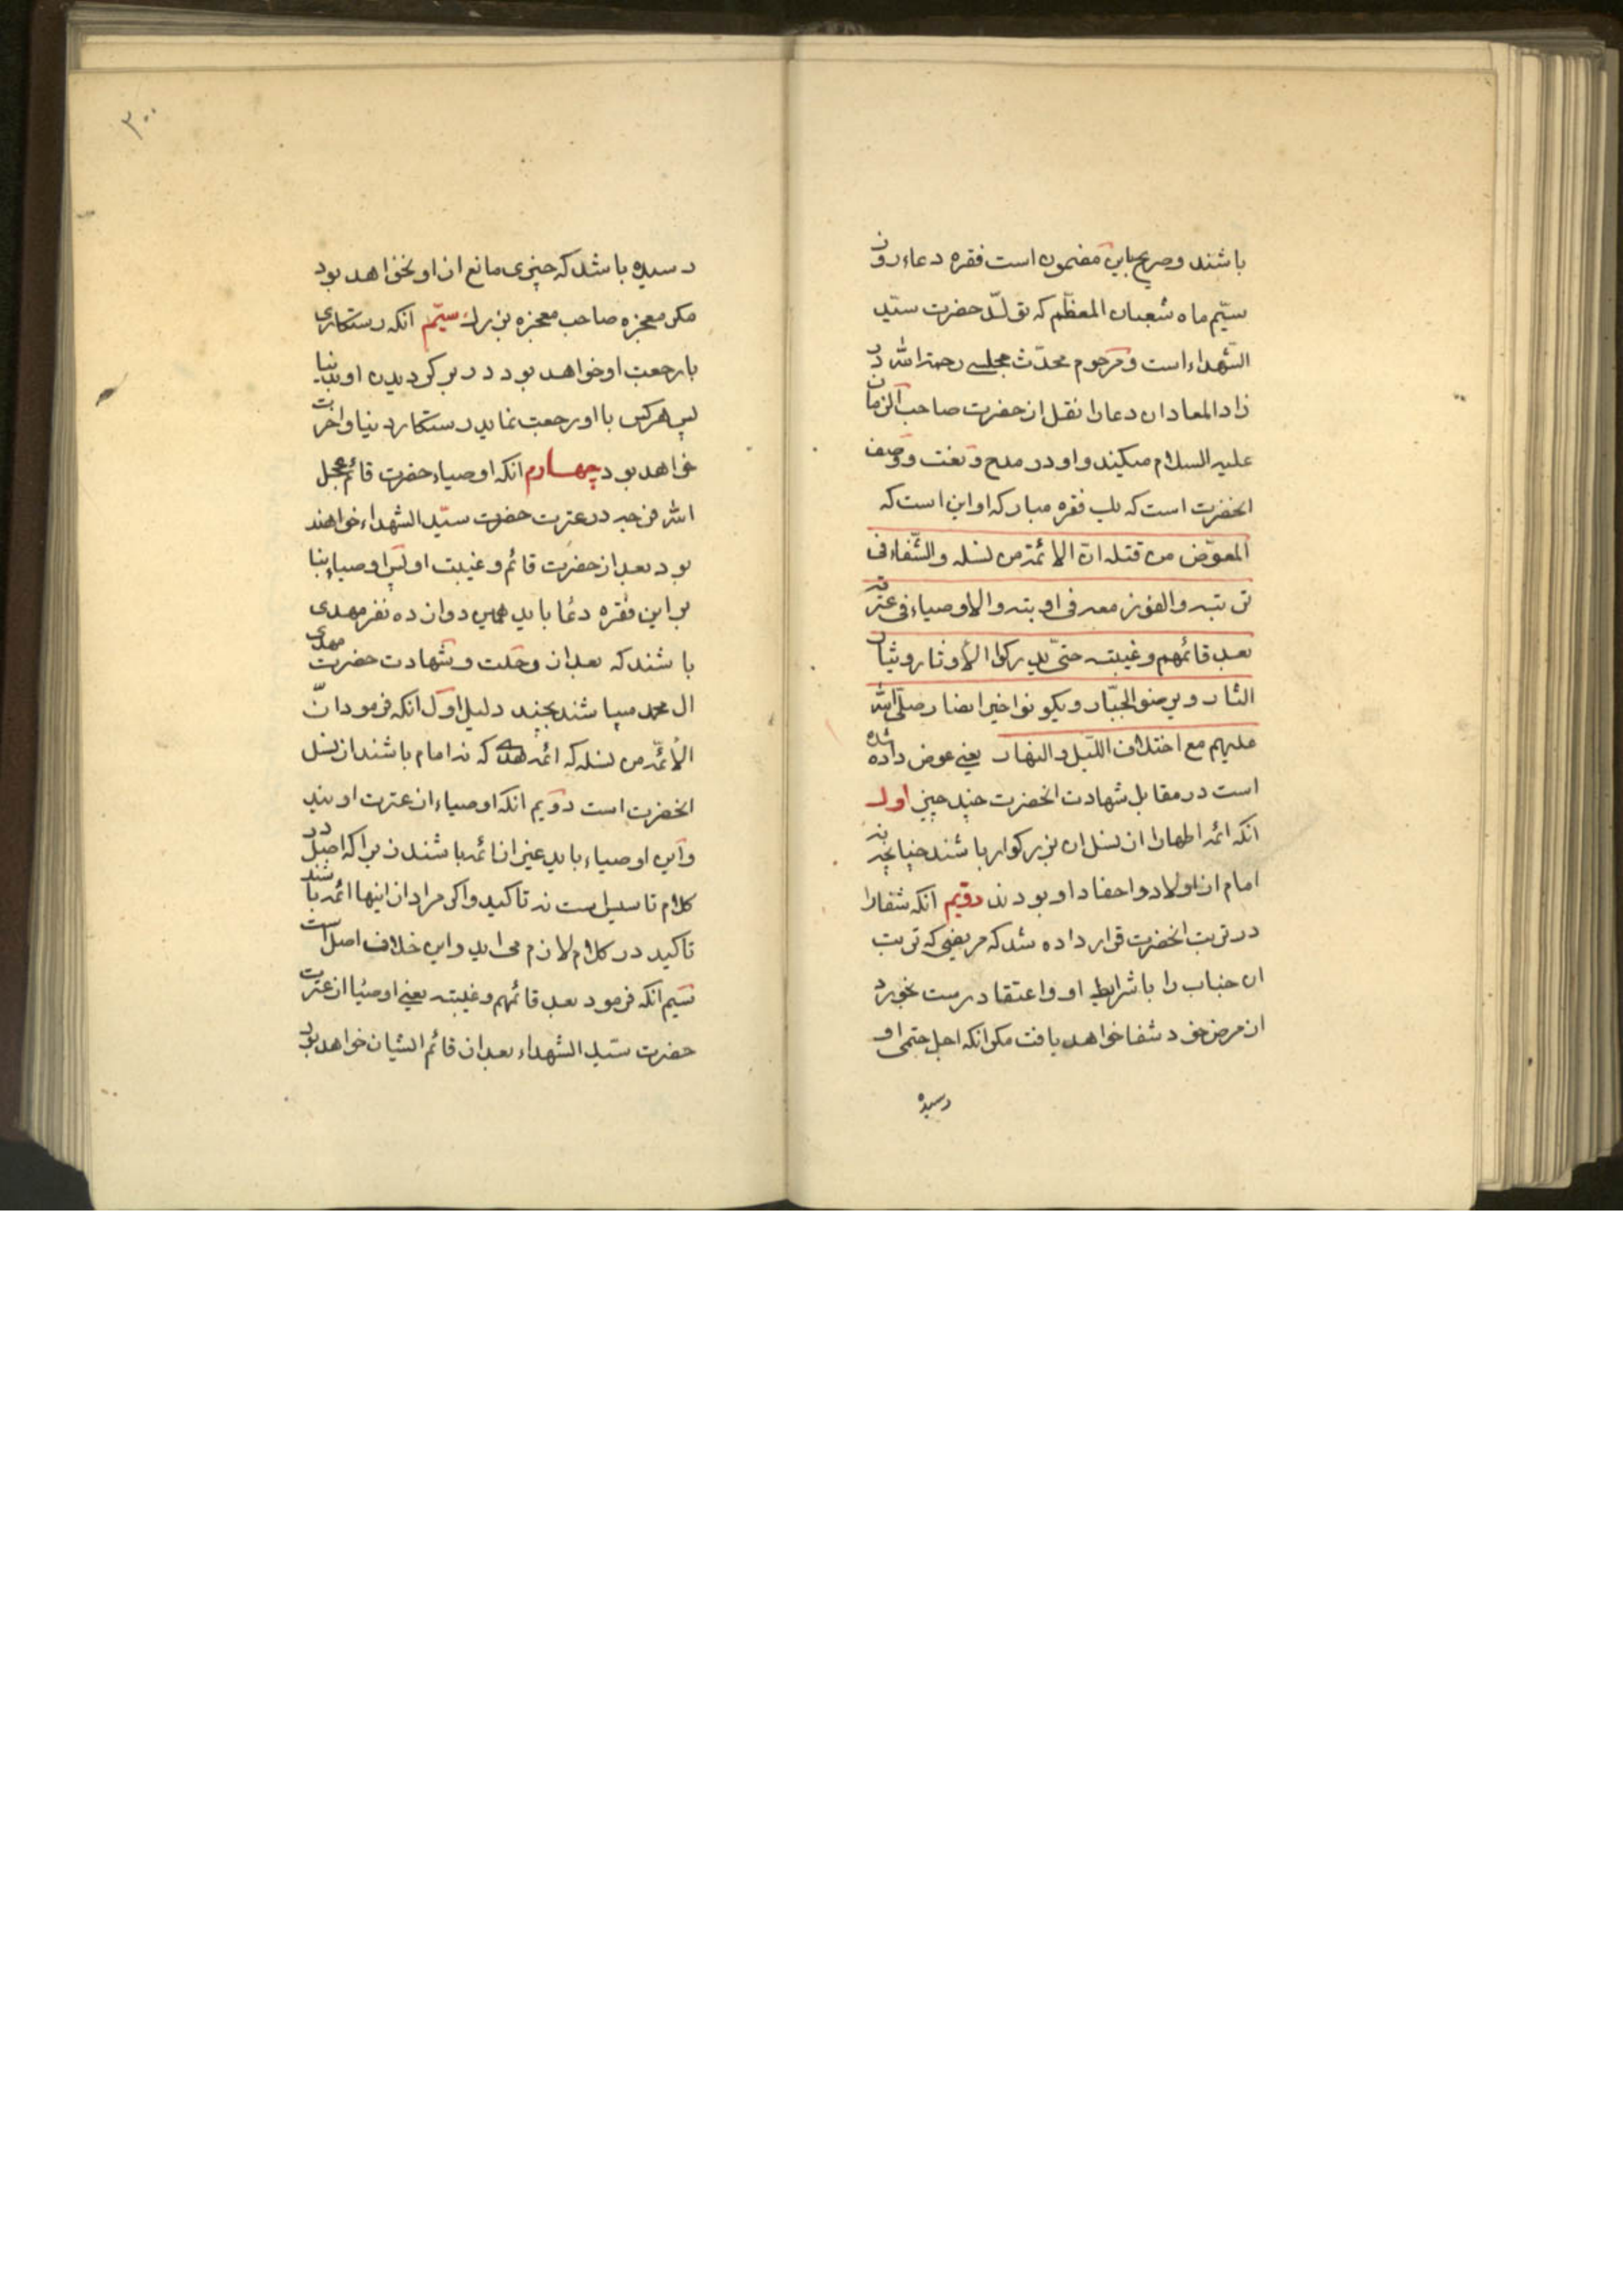 باشند و صریح باین مضمون است فقره دعاء روز
سیّم ماه شعبان المعظّم که تولّد حضرت سیّد
الشهداء است و مرحوم محدّث مجلسی رحمة الله در
زاد المعاد ان دعا را نقل از حضرت صاحب الزمان
علیه السلام میکند و او در مدح و نعت و وصف
انحضرت است که یک فقره مبارکه او این است که
المعوّض من قتله انّ الائمّة من نسله والشّفاء فی
تربته والفوز معه فی اوبته والاوصیاء فی عترته
بعد قائمهم وغیبته حتّی یدرکوا الأوتار ویثأروا
الثار ویرضو الجبّار ویکونوا خیر انصار صلّی الله
علیهم مع اختلاف اللّیل والنهار یعنی عوض داده شده
است در مقابل شهادت انحضرت چند چیز اول
انکه ائمه اطهار از نسل ان بزرکوار باشند چنانچه نه
امام از اولاد و احفاد او بودند دویّم انکه شفا را
در تربت انحضرت قرار داده شد که مریضی که تربت
ان جناب را با شرایط او و اعتقاد درست بخورد
از مرض خود شفا خواهد یافت مکر انکه اجل حتمی او
رسیده
۳۰۰
رسیده باشد که چیزی مانع از او نخواهد بود
مکر معجزه صاحب معجزه بزرك سیّم انکه رستکاری
با رجعت او خواهد بود در بر کردیدن او بدنیا
پس هر کس با او رجعت نماید رستکار دنیا و اخرت
خواهد بود چهارم انکه اوصیاء حضرت قائم عجل
الله فرجه در عترت حضرت سیّد الشهداء خواهند
بود بعد از حضرت قائم و غیبت او پس اوصیاء بنا
بر این فقره دعا باید همین دوازده نفر مهدی
باشند که بعد از رحلت و شهادت حضرت مهدی
ال محمد میباشند بچند دلیل اوّل انکه فرمود انّ
الأئمّة من نسله که ائمه هدی که نه امام باشند از نسل
انحضرت است دویم انکه اوصیاء از عترت اویند
و این اوصیاء باید غیر از ائمه باشند زیرا که اصل در
کلام تاسیس است نه تاکید و اکر مراد از اینها ائمه باشند
تاکید در کلام لازم می اید و این خلاف اصل است
سیّم انکه فرمود بعد قائمهم وغیبته یعنی اوصیا از عترت
حضرت سیّد الشهداء بعد از قائم ایشان خواهد بود